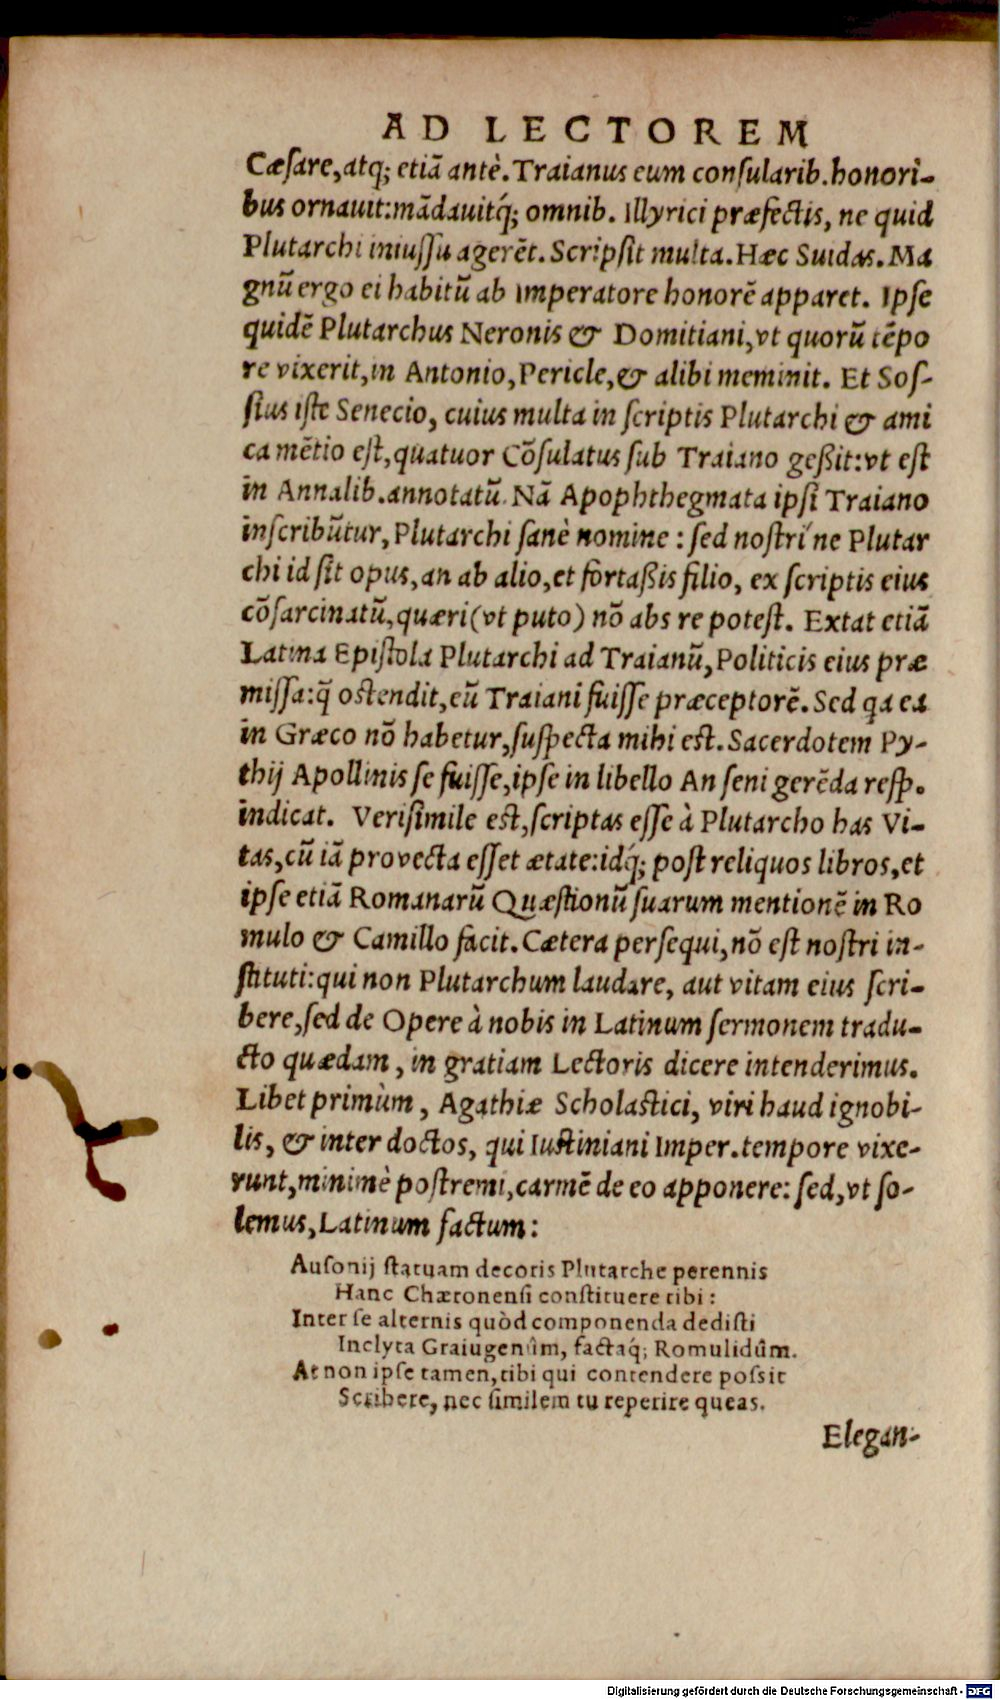 AD LECTOREM
Cæsare, atq; etiã antè. Traianus eum consularib. honori-
bus ornauit: mãdauitq́; omnib. Illyrici præfectis, ne quid
Plutarchi iniussu agerẽt. Scripsit multa. Hæc Suidas. Ma
gnũ ergo ei habitũ ab Imperatore honorẽ apparet. Ipse
quidẽ Plutarchus Neronis & Domitiani, vt quorũ tẽpo
re vixerit, in Antonio, Pericle, & alibi meminit. Et Sos-
sius iste Senecio, cuius multa in scriptis Plutarchi & ami
ca mẽtio est, quatuor Cõsulatus sub Traiano geßit: vt est
in Annalib. annotatũ. Nã Apophthegmata ipsi Traiano
inscribũtur, Plutarchi sanè nomine : sed nostri ne Plutar
chi id sit opus, an ab alio, et fortaßis filio, ex scriptis eius
cõsarcinatũ, quæri (vt puto) nõ abs re potest. Extat etiã
Latina Epistola Plutarchi ad Traianũ, Politicis eius præ
missa: q̃ ostendit, eũ Traiani fuisse præceptorẽ. Sed qa ea
in Græco nõ habetur, suspecta mihi est. Sacerdotem Py-
thij Apollinis se fuisse, ipse in libello An seni gerẽda resp.
indicat. Verisimile est, scriptas esse à Plutarcho has Vi-
tas, cũ iã provecta esset ætate: idq́; post reliquos libros, et
ipse etiã Romanarũ Quæstionũ suarum mentionẽ in Ro
mulo & Camillo facit. Cætera persequi, nõ est nostri in-
stituti: qui non Plutarchum laudare, aut vitam eius scri-
bere, sed de Opere à nobis in Latinum sermonem tradu-
cto quædam, in gratiam Lectoris dicere intenderimus.
Libet primùm, Agathiæ Scholastici, viri haud ignobi-
lis, & inter doctos, qui Iustiniani Imper. tempore vixe-
runt, minimè postremi, carmẽ de eo apponere: sed, vt so-
lemus, Latinum factum:
Ausonij statuam decoris Plutarche perennis
Hanc Chæronensi constituere tibi:
Inter se alternis quòd componenda dedisti
Inclyta Graiugenûm, factaq́; Romulidûm.
At non ipse tamen, tibi qui contendere possit
Scribere, nec similem tu reperire queas.
Elegan-
Digitalisierung gefördert durch die Deutsche Forschungsgemeinschaft - DFG